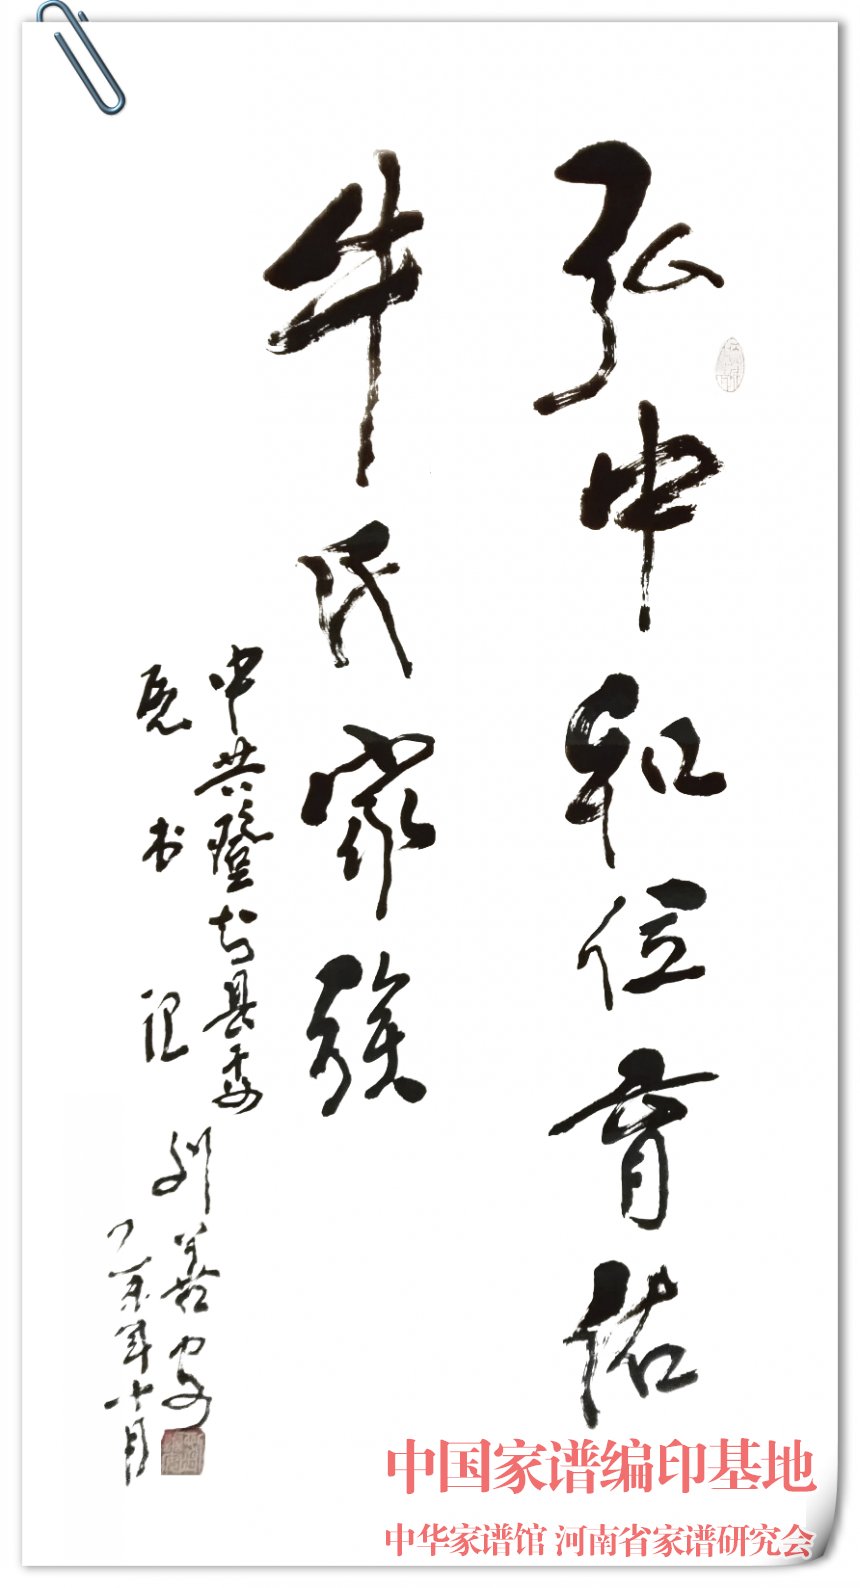 弘中和位育佑
牛氏家族
中共登封县委
原书记
刘善
乙未年十月
中国家谱编印基地
中华家谱馆 河南省家谱研究会